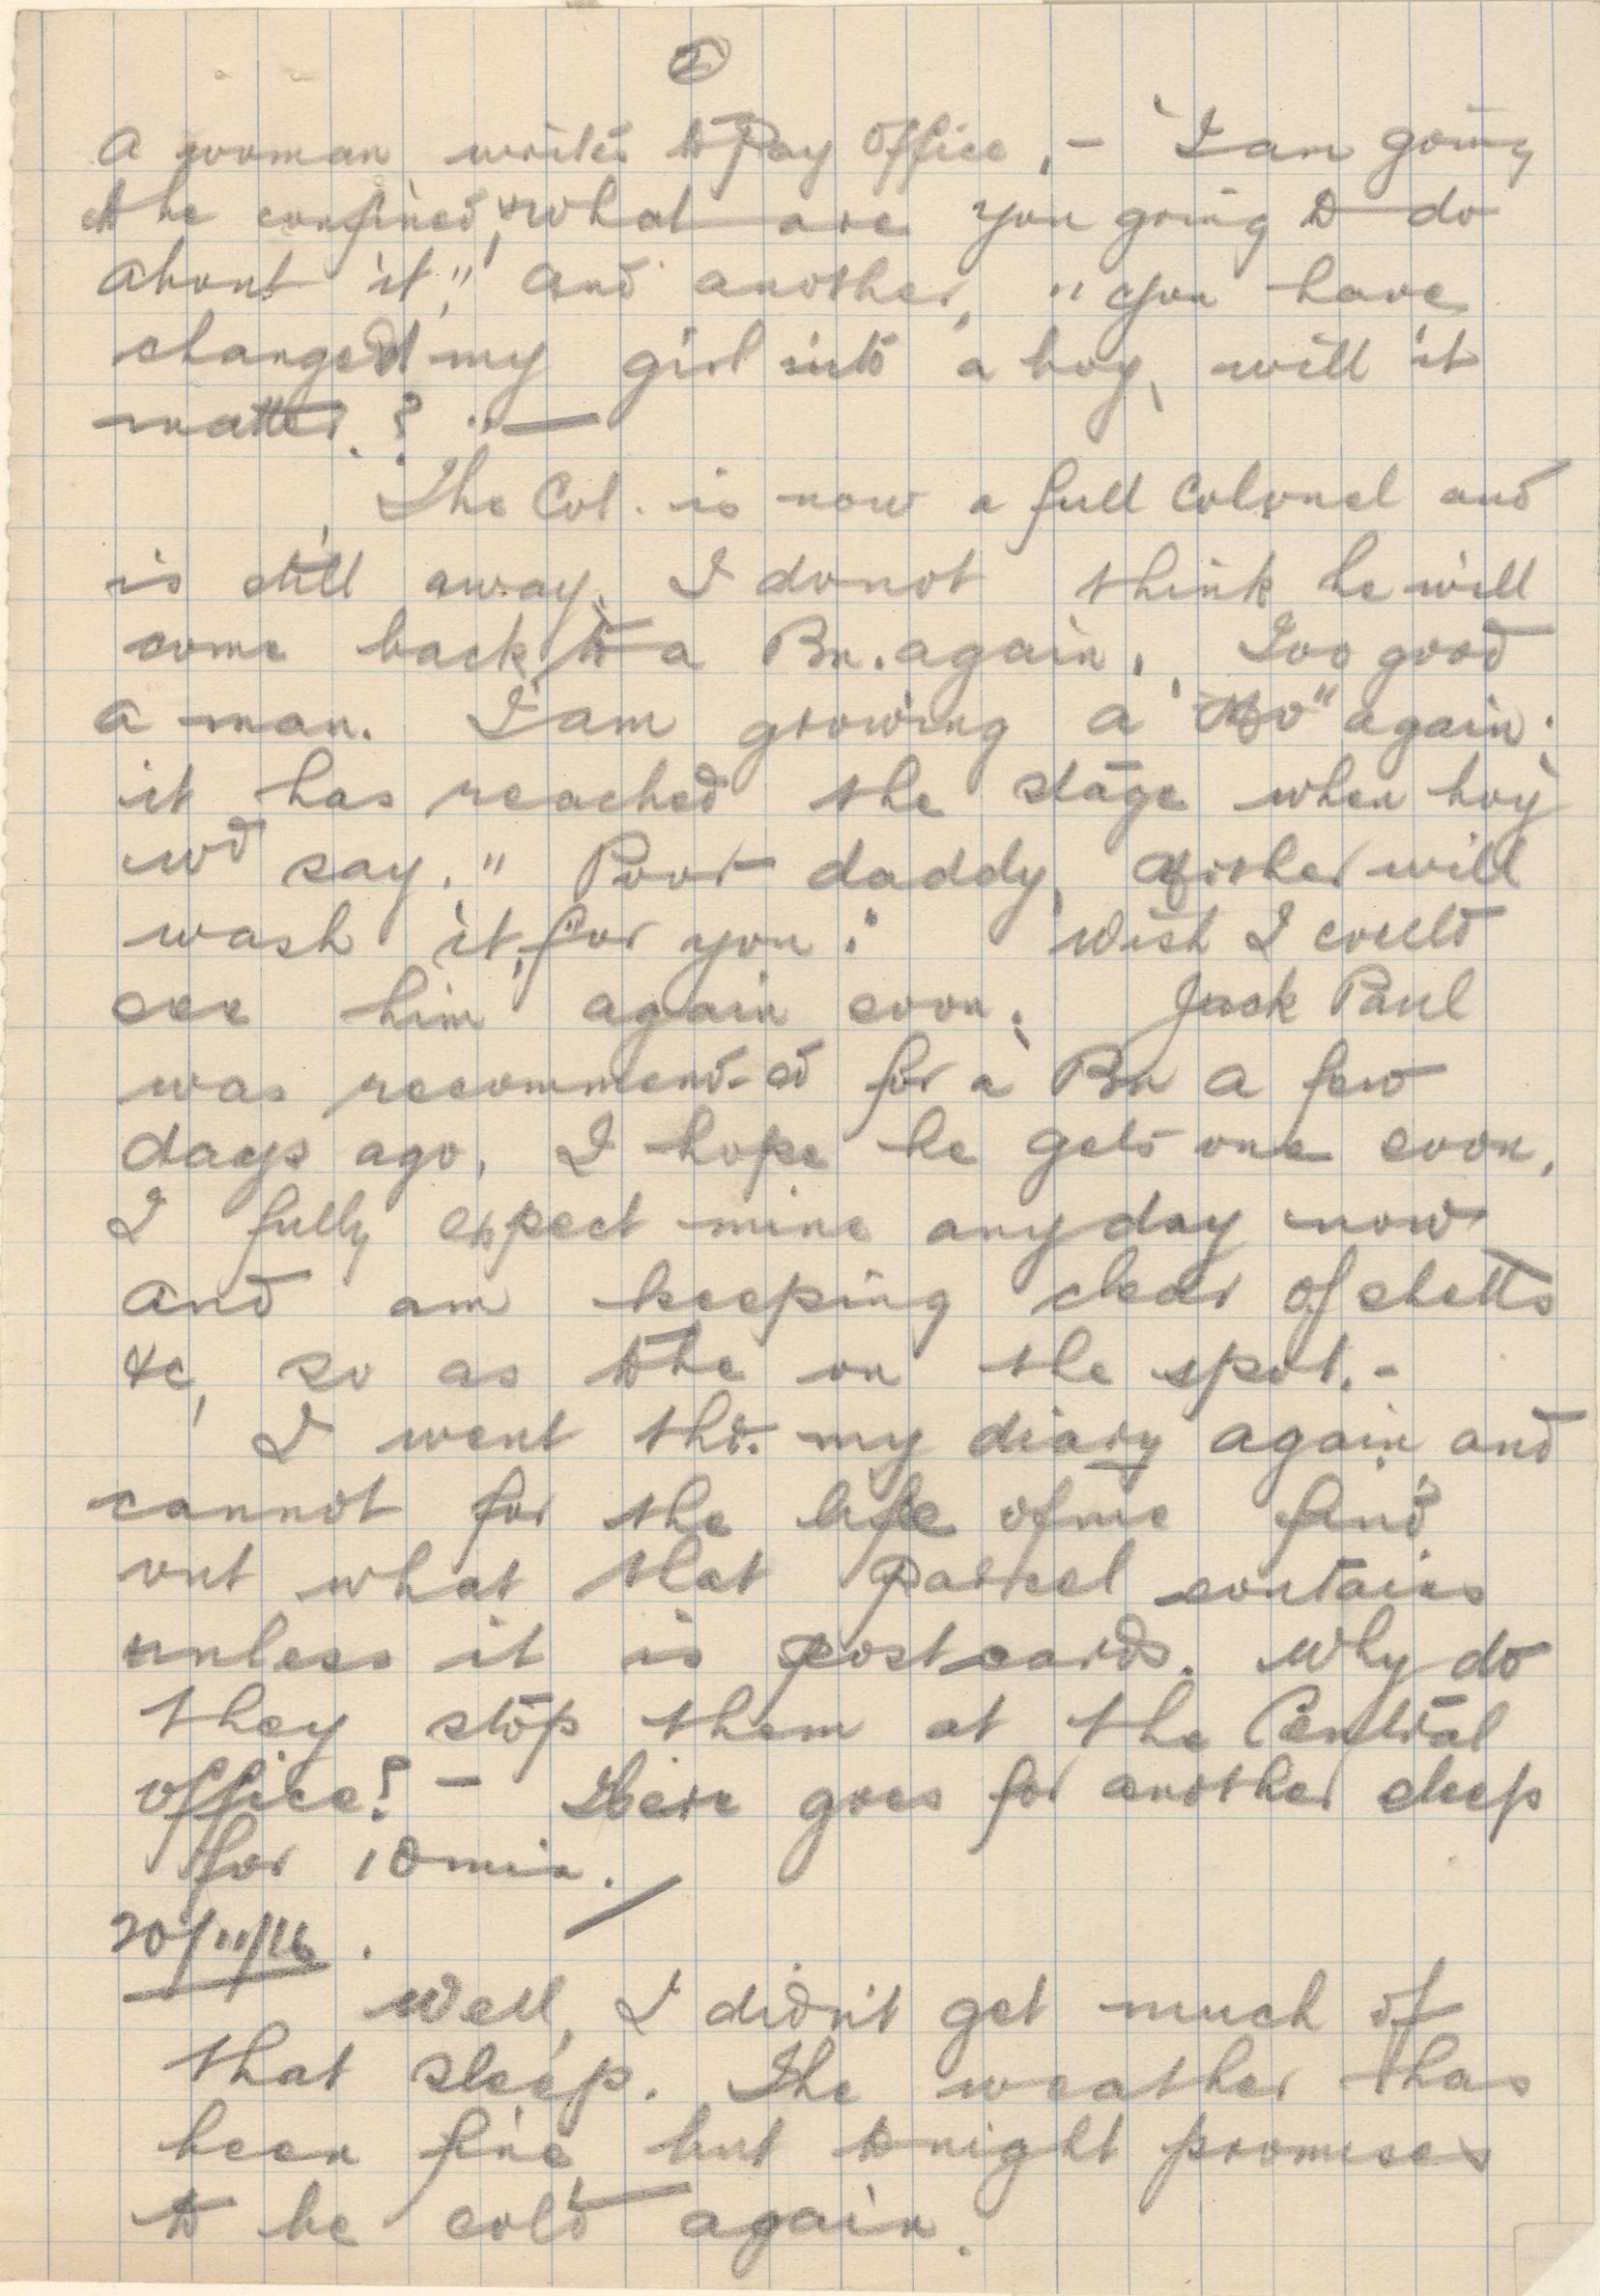 ②
A woman writes to Pay Office, - "I am going
to be confined, what are you going to do
about it," and another, "You have
changed my girl into a boy, will it
matter? " —
The Col. is now a full Colonel and
is still away. I do not think he will
come back to a Bn. again. Too good
a man. I am growing a "Mo" again.
it has reached the stage when boy
wd say. " Poor daddy, will
wash it for you." Wish I could
see him again soon. Jack Paul
was recommend-ed for a Bn a few
days ago. I hope he gets one soon.
I fully expect mine any day now
and am keeping clear of shells
&c, so as to be on the spot. -
I went thro. my diary again and
cannot for the life of me find
out what that parcel contains
unless it is postcards. Why do
they stop them at the Central
office? - Here goes for another sleep
for 10 min.
20/11/16.
Well, I didn't get much of
that sleep. The weather has
been fine but tonight promises
to be cold again.